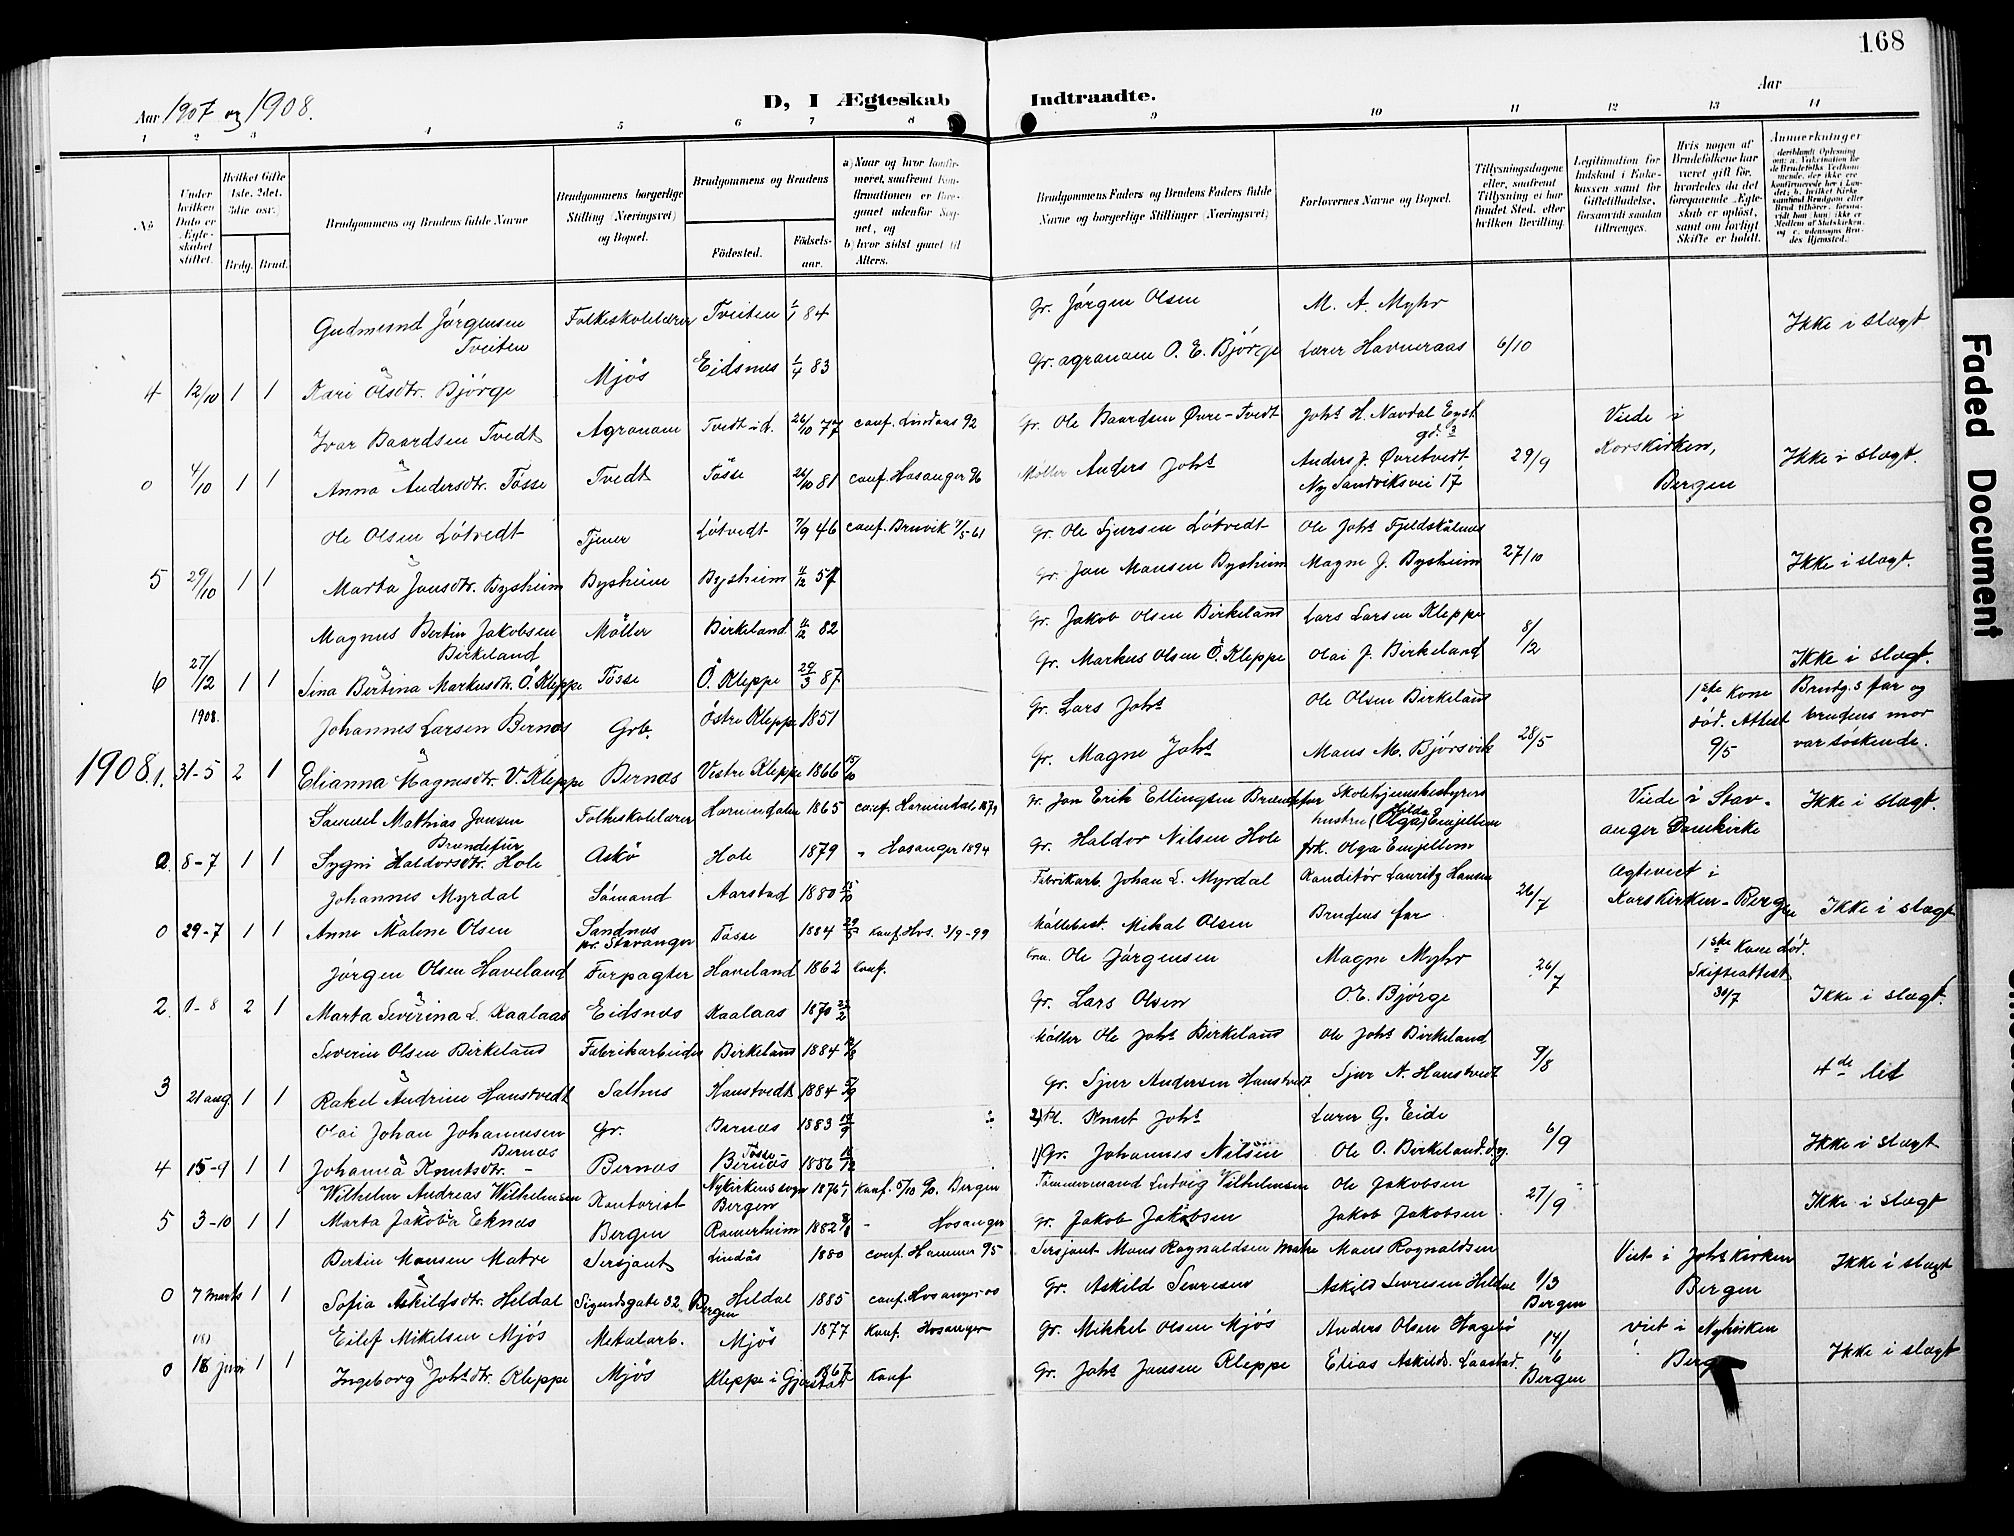 168
Aar 1907 og 1908.
D, I Ægteskab Indtraadte.
Aar
1 2 3 4 5 6 7 8 9 10 11 12 13 14
No.
Under hvilken Dato er Ægteskabet stiftet.
Hvilket Gifte 1ste, 2det, 3die osv.
Brdg. Brud.
Brudgommens og Brudens fulde Navne
Brudgommens borgerlige Stilling (Næringsvei) og Bopæl.
Brudgommens og Brudens
Födested. Födsels-aar.
a) Naar og hvor konfirmeret, saafremt Konfirmationen er foregaaet udenfor Sognet, og
b) hvor sidst gaaet til Alters.
Brudgommens Faders og Brudens Faders fulde Navne og borgerlige Stillinger (Næringsvei)
Forlovernes Navne og Bopæl.
Tillysningsdagene eller, saafremt Tillysning ei har fundet Sted, efter hvilken Bevilling.
Legitimation for Indskud i Enkekassen samt for Giftetilladelse, forsaavidt saadan tiltrænges.
Hvis nogen af Brudefolkene har været gift før, hvorledes da det foregaaende Ægteskab er oplöst, samt om lovligt Skifte er holdt.
Anmerkninger
Gudmund Jörgensen Tveiten Folkeskolelærer Tveiten 1/1 84 Gr. Jörgen Olsen M. A. Myhr Ikke i slægt
4 12/10 1 1 Kari Olsdtr. Björge Mjös Eidsnes 1/4 83 Gr. agronom O. E. Björge Lærer Havneraas 6/10
Ivar Baardsen Tvedt Agronom Tvedt i d. 26/10 77 conf. Lindaas 92 Gr. Ole Baardsen Øvre-Tvedt Johs H. Navdal Viede i
0 4/10 1 1 Anna Andersdtr. Tösse Tvedt Tösse 26/10 81 conf. Hosanger 96 Möller Anders Johs Anders J. Øvretvedt Ny Sandviksvei 17 29/9 Korskirken, Bergen Ikke i slægt.
Ole Olsen Lötvedt Tjener Lötvedt 7/9 46 conf. Bruvik 7/5-61 Gr. Ole Sjursen Lötvedt Ole Johs Fjeldskaalnes
5 29/10 1 1 Marta Jonsdtr. Bysheim Bysheim Bysheim 11/12 57 Gr. Jon Monsen Bysheim Magne J. Bysheim 27/10 Ikke i slægt.
Magnus Bertin Jakobsen Birkeland Möller Birkeland 11/12 82 Gr. Jakob Olsen Birkeland Lars Larsen Kleppe
6 27/12 1 1 Sina Bertina Markusdtr. Ö. Kleppe Tösse Ö. Kleppe 29/3 87 Gr. Markus Olsen Ö. Kleppe Olai J. Birkeland 8/12 Ikke i slægt.
1908. Johannes Larsen Bernæs Grb. Östre Kleppe 1851 Gr. Lars Johs Ole Olsen Birkeland 1ste Kone död. Attest 9/5 Brudg.s far og brudens mor var söskende.
1908. 1. 31-5 2 1 Elianna Magnesdtr. V. Kleppe Bernæs Vestre Kleppe 1866 15/10 Gr. Magne Johs Mons M. Bjørsvik 28/5
Samuel Mathias Jonsen Brundefur Folkeskolelærer Hornindalen 1865 conf. Hornindal 1879 Gr. Jon Erik Ellingsen Skolehjemsbestyrers hustru Hilda Emjellem Viede i Stavanger Domkirke Ikke i slægt.
0. 8-7 1 1 Sygni Haldorsdtr. Hole Askö Hole 1879 " Hosanger 1894 Gr. Haldor Nilsen Hole frk. Olga Emjellem
Johannes Myrdal Sömand Aarstad 1880 15/10 Fabrikarb. Johan L. Myrdal Konditör Lauritz Hansen Ægteviet i Korskirken - Bergen
0 29-7 1 1 Anna Malene Olsen Sandnes pr. Stavanger Tösse 1884 29/5 Konf. Hos. 3/9-99 Möllebest. Mikal Olsen Brudens far 26/7 Ikke i slægt
Jörgen Olsen Haveland Forpagter Haveland 1862 Konf. Ole Jörgensen Magne Myhr 26/7 1ste Kone död. Skifteattest 30/7
2. 1-8 2 1 Marta Severina L. Kaalaas Eidsnes Kaalaas 1870 Gr. Lars Olsen O. E. Björge Ikke i slægt.
Severin Olsen Birkeland Fabrikarbeider Birkeland 1884 Möller Ole Johs Birkeland Ole Johs Birkeland
3 21 aug 1 1 Rakel Andrine Hanstvedt Salhus Hanstvedt 1884 Gr. Sjur Andersen Hanstvedt Sjur N. Hanstvedt 9/8 4de led
Olai Johan Johannesen Bernæs Gr. Bernæs 1883 2) Knut Johs Lærer G. Eide
4 15-9 1 1 Johanna Knutsdtr. - Bernæs Tösse Bernæs 1886 1) Gr. Johannes Nilsen Ole O. Birkeland 6/9 Ikke i slægt
Wilhelm Andreas Wilhelmsen Kontorist Nykirkens sogn Bergen 1876 Konf. 5/10 90. Bergen Tömmermand Ludvig Vilhelmsen Ole Jakobsen
5 3-10 1 1 Marta Jakoba Eknæs Bergen Romerheim 1882 - Hosanger Gr. Jakob Jakobsen Jakob Jakobsen. 27/9 Ikke i slægt
Bertin Monsen Matre Sersjant Lindås 1880 conf. Hammer 95 Sersjant Mons Rognaldsen Matre Mons Rognaldsen Viet i Johs kirken Bergen Ikke i slægt
0 7 marts 1 1 Sofia Askildsdtr. Heldal Sigurdsgate 32 Bergen Heldal 1885 conf. Hosanger 00 Gr. Askild Severesen Askild Severesen Heldal 1/3 Bergen
Eilef Mikelsen Mjös Metalarb. Mjös 1877 Konf. Hosanger Gr. Mikkel Olsen Mjös Anders Olsen 14/6 Bergen Viet i Nykirken
0 18 juni 1 1 Ingeborg Johsdtr. Kleppe Mjös Kleppe i 1867 Konf Gr. Johs Jonsen Kleppe Elias Askilds. Laastad. Ikke i slægt
Faded Document